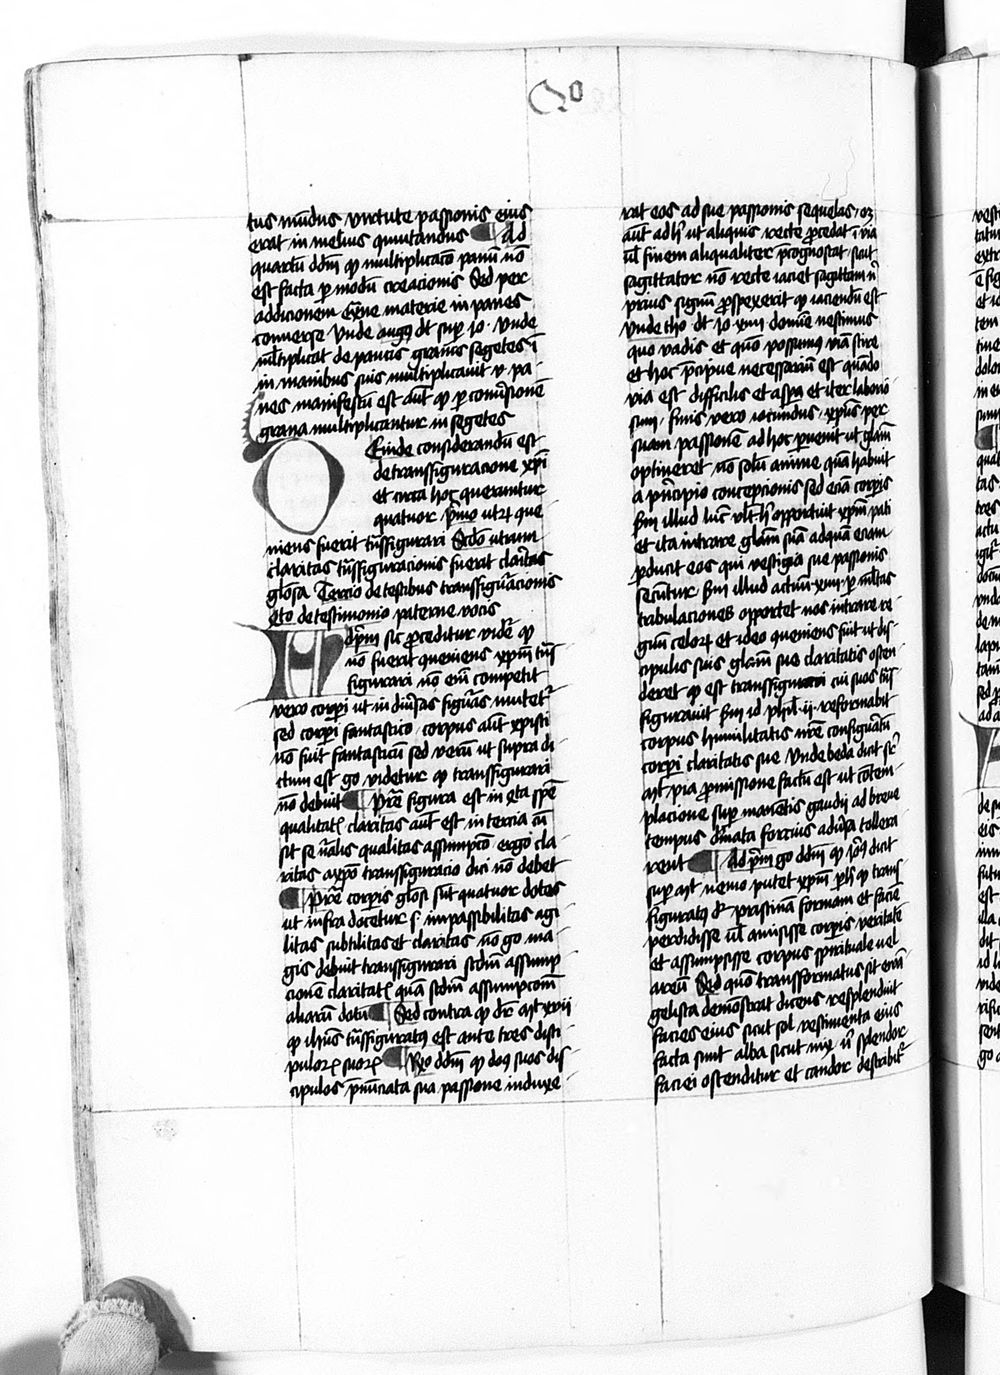 Qo
tus mūdus virtute passionis eius
erat in melius īmutandus Ad
quartū dd̄m qp multiplicaco panū nō
est facta p modū creacionis Sed per
addicionem extrāne materie in panes
conuerse Vnde augꝰ dt suꝑ Jo. Vnde
ml̄tiplicat de paucis granis segetes ī
in manibus suis multiplicauit v pa
nes manifestū est aut̄ qp p conūsionē
grana multiplicantur in segetes
Deinde considerandū est
de transfiguracione xp̄i
et circa hoc querantur
quatuor p̄mo utrꝝ que
niens fuerit tn̄sfigurari Scd̄o utrum
claritas tn̄sfiguracionis fuerat claritas
glōsa Tercio de testibus transfigūacionis
qto de testimonio paterne vocis
Ad p̄m sic proceditur videt̄ qp
nō fuerit queniens xp̄m tn̄s
figurari nō eni competit
vero corpi ut in diūsas figūas mutet̄
sed corpi fantastico corpus aut̄ xpisti
nō fuit fantasticū sed verū ut supra di
ctum est go videtur qp transfigurari
nō debuit p̄tre figura est in qta sp̄e
qualitat̄ claritas aut̄ est in tercia cū
sit sen̄alis qualitas assumpco ergo cla
ritas a xpo transfiguracio dici nō debet
p̄tre corpis glōsi sūt quatuor dotes
ut infra docetur s impassibilitas agi
litas subtilitas et claritas nō go ma
gis debuit transfigurari scdm assump
cione claritat̄ quā scdm assumpcōm
aliarū dotū Sed contra qp dr̄ mt xvii
qp ihūs tn̄sfiguratꝰ est ante tres disci
pulorꝝ suorꝝ Rn̄o dd̄m qp dn̄s suos dis
cipulos pn̄ūciata sua passione induxe
rat eos ad sue passionis sequelas oꝫ
aut̄ ad h̄ ut aliquis recte procedat ī via
ul̄ finem aliqualiter p̄cognoscat sicut
sagittator nō recte iaciet sagittam n̄
prius signū prospexerit qp iaciendū est
Vnde tho dt Jo xiiii domīe nescimus
quo vadis et quō possumꝰ viā scire
et hoc p̄cipue necessariū est quādo
via est difficilis et asꝑa et iter laborio
sum finis vero iocundus xp̄us per
suam passionē ad hoc ꝑuenit ut gl̄am
optineret nō solū anime quā habuit
a principio concepcionis sed eciā corpis
s̄m illud luc̄ vlt̄ h̄ opportuit xp̄m pati
et ita intrare gl̄am suā ad quam eciam
ꝑducit eos qui vestigia sue passionis
secūtur s̄m illud actuū xiiii ꝑ ml̄tas
tribulaciones opportet nos intrare re
gnū celorꝝ et ideo queniens fuit ut dis
cipulis suis gl̄am sue claritatis osten
deret qp est transfigurari cui suos tn̄s
figurauit s̄m id phil̄ ii reformabit
corpus humilitatis nr̄e configuātū
corpi claritatis sue Vnde beda dicit sr̄
mt pia promissione factū est ut cōtem
placione suꝑ manētis gaudii ad breue
tempus d̄mata forcius adūsa tollera
rent Ad p̄m go dd̄m qp Joꝯ dicit
suꝑ mt nemo putet xp̄m p h̄ qp trans
figuratꝰ dr̄ pristinā formam et faciē
perdidisse ul̄ amisisse corpis veritatē
et assumpsisse corpus spirituale uel
areū Sed quō transformatus sit ewā
gelista demōstrat dicens resplenduit
facies eius sicut sol vestimenta eius
facta sunt alba sicut nix ū splendor
faciei ostenditur et candor describit̄